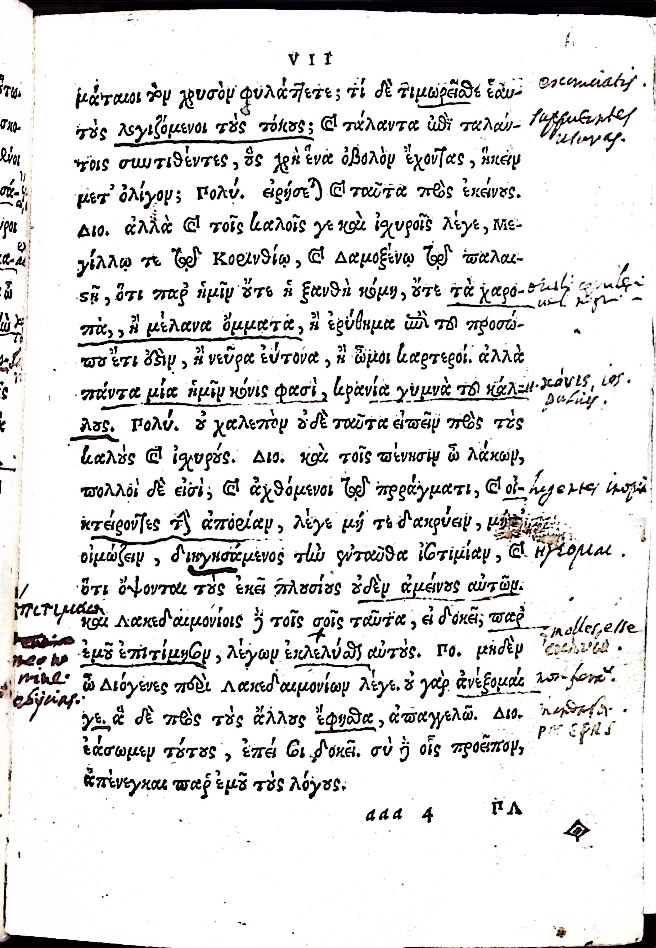 VII
μάταιοι τὸν χρυσὸν φυλάττετε; τί δὲ τιμωρεῖσθε ἑαυ-
τοὺς λογιζόμενοι τοὺς τόκους; καὶ τάλαντα ἐπὶ ταλάν-
τοις συντιθέντες, οὓς χρὴ ἕνα ὀβολὸν ἔχοντας, ἥκειν
μετ' ὀλίγον; Πολύ. εἰρήσεται καὶ ταῦτα πρὸς ἐκείνους.
Διο. ἀλλὰ καὶ τοῖς καλοῖς γε καὶ ἰχυροῖς λέγε, Με-
γίλλῳ τε τῷ Κορινθίῳ, καὶ Δαμοξένῳ τῷ παλαι-
στῇ, ὅτι παρ' ἡμῖν οὔτε ἡ ξανθὴ κόμη, οὔτε τὰ χαρο-
πὰ, ἢ μέλανα ὄμματα, ἢ ἐρύθημα ἐπὶ τοῦ προσώ-
που ἔτι ἐστὶν, ἢ νεῦρα εὔτονα, ἢ ὦμοι καρτεροί. ἀλλὰ
πάντα μία ἡμῖν κόνις φασὶ, κρανία γυμνὰ τοῦ κάλ-
λους. Πολύ. οὐ χαλεπὸν οὐδὲ ταῦτα εἰπεῖν πρὸς τοὺς
καλοὺς καὶ ἰχυρούς. Διο. καὶ τοῖς πένησιν ὦ λάκων,
πολλοὶ δέ εἰσί; καὶ ἀχθόμενοι τῷ πράγματι, καὶ οἰ-
κτείροντες τὴν ἀπορίαν, λέγε μή τε δακρύειν, μήτε
οἰμώζειν, διηγησάμενος τὴν ἐνταῦθα ἰστιμίαν, καὶ
ὅτι ὄψονται τοὺς ἐκεῖ πλουσίους οὐδὲν ἀμείνους αὐτῶν.
καὶ Λακεδαιμονίοις δὲ τοῖς σοῖς ταῦτα, εἰ δοκεῖ, παρ'
ἐμοῦ ἐπιτίμησον, λέγων ἐκλελύσθαι αὐτούς. Πο. μηδὲν
ὦ Διόγενες περὶ Λακεδαιμονίων λέγε. οὐ γὰρ ἀνέξομαί
γε. ἃ δὲ πρὸς τοὺς ἄλλους ἔφησθα, ἀπαγγελῶ. Διο.
ἐάσωμεν τούτους, ἐπεί σοι δοκεῖ. σὺ δὲ οἷς προεῖπον,
ἀπένεγκαι παρ' ἐμοῦ τοὺς λόγους.
aaa 4
ΠΛ
excruciatis.
supputantes
usuras.
κόνις, ιος.
pulvis.
ἡγέομαι.
molles, esse
non feram.